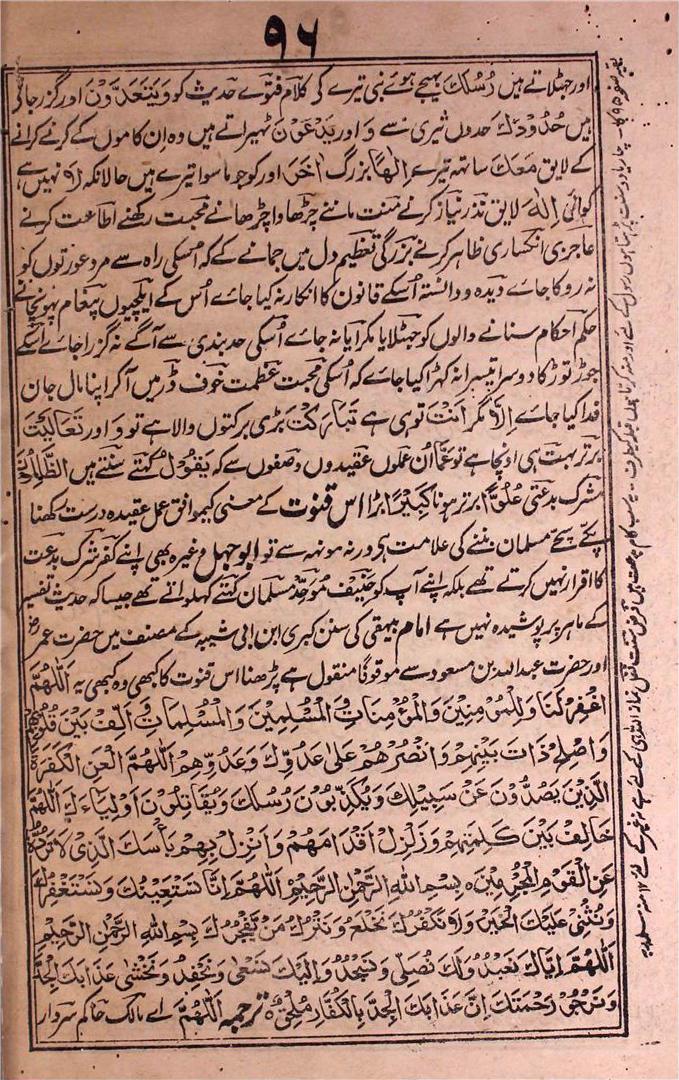 ۹۶
اور جھٹلاتے ہیں رُسُلَكَ بھیجے ہوئے نبی تیرے کی کلام فتوے حدیث کو وَيَتَعَدَّوْنَ اور گزر جاتے
ہیں حُدُوْدَكَ حدوں تیری سے وَ اور يَدْعُوْنَ ٹھیراتے ہیں وہ اِن کاموں کے کرنے کرانے
کے لایق مَعَكَ ساتھ تیرے اِلٰهًا بزرگ اٰخَرَ اور کو جو ما سوا تیرے ہیں حالانکہ لَا نہیں ہے
کوائی اِلٰهَ لایق نذر نیاز کرنے منت ماننے چڑھاوا چڑھانے محبت رکھنے اطاعت کرنے
عاجزی انکساری ظاہر کرنے بزرگی تعظیم دل میں جمانے کے کہ اُسکی راہ سے مرد عورتوں کو
نہ روکا جاے دیدہ و دانستہ اُسکے قانون کا انکار نہ کیا جاے اُس کے ایلچیوں پیغام پہونچانے
حکم احکام سنانے والوں کو جھٹلایا مکرایا نہ جاے اُسکی حد بندی سے آگے نہ گزرا جاے اُسکے
جوڑ توڑ کا دوسرا تیسرا نہ کہڑا کیا جاے کہ اُسکی محبت عظمت خوف ڈر میں آکر اپنا مال جان
فدا کیا جاے اِلَّا مگر اَنْتَ تو ہی ہے تَبَارَكْتَ بڑی برکتوں والا ہے تو وَ اور تَعَالَيْتَ
برتر بہت ہی اونچا ہے تو عَمَّا اُن عملوں عقیدوں وصفوں سے کہ يَقُوْلُ کہتے سنتے ہیں الظَّالِمُوْنَ
مشرک بدعتی عُلُوًّا برتر ہونا كَبِيْرًا بڑا اس قنوت کے معنی کیموافق عمل عقیدہ درست کھنا
پکے سچے مسلمان بننے کی علامت ہو ورنہ مونہہ سے تو ابو جہل وغیرہ بھی اپنے کفر شرک بدعت
کا اقرار نہیں کرتے تھے بلکہ اپنے آپ کو حنیف موحد مسلمان کہتے کہلواتے تھے جیسا کہ حدیث تفسیر
کے ماہر پر پوشیدہ نہیں ہے امام بیہقی کی سنن کبری ابن ابی شیبہ کے مصنف میں حضرت عمر رض
اور حضرت عبداللہ بن مسعود سے موقوفا منقول ہے پڑھنا اس قنوت کا کبھی وہ کبھی یہ اَللّٰهُمَّ
اغْفِرْ لَنَا وَلِلْمُؤْمِنِيْنَ وَالْمُؤْمِنَاتِ وَالْمُسْلِمِيْنَ وَالْمُسْلِمَاتِ اَلِّفْ بَيْنَ قُلُوْبِهِمْ
وَاَصْلِحْ ذَاتَ بَيْنِهِمْ وَانْصُرْهُمْ عَلٰى عَدُوِّكَ وَعَدُوِّهِمْ اَللّٰهُمَّ الْعَنِ الْكَفَرَةَ
الَّذِيْنَ يَصُدُّوْنَ عَنْ سَبِيْلِكَ وَيُكَذِّبُوْنَ رُسُلَكَ وَيُقَاتِلُوْنَ اَوْلِيَاءَكَ اَللّٰهُمَّ
خَالِفْ بَيْنَ كَلِمَتِهِمْ وَزَلْزِلْ اَقْدَامَهُمْ وَاَنْزِلْ بِهِمْ بَأْسَكَ الَّذِىْ لَا تَرُدُّهٗ
عَنِ الْقَوْمِ الْمُجْرِمِيْنَ ہ بِسْمِ اللّٰهِ الرَّحْمٰنِ الرَّحِيْمِ اَللّٰهُمَّ اِنَّا نَسْتَعِيْنُكَ وَنَسْتَغْفِرُكَ
وَنُثْنِىْ عَلَيْكَ الْخَيْرَ وَلَا نَكْفُرُكَ نَخْلَعُ وَنَتْرُكُ مَنْ يَّفْجُرُكَ بِسْمِ اللّٰهِ الرَّحْمٰنِ الرَّحِيْمِ
اَللّٰهُمَّ اِيَّاكَ نَعْبُدُ وَلَكَ نُصَلِّىْ وَنَسْجُدُ وَاِلَيْكَ نَسْعٰى وَنَحْفِدُ وَنَخْشٰى عَذَابَكَ الْجِدَّ
وَنَرْجُوْ رَحْمَتَكَ اِنَّ عَذَابَكَ الْجِدَّ بِالْكُفَّارِ مُلْحِقٌ ہ ترجمہ اَللّٰهُمَّ اے مالک حاکم سردار